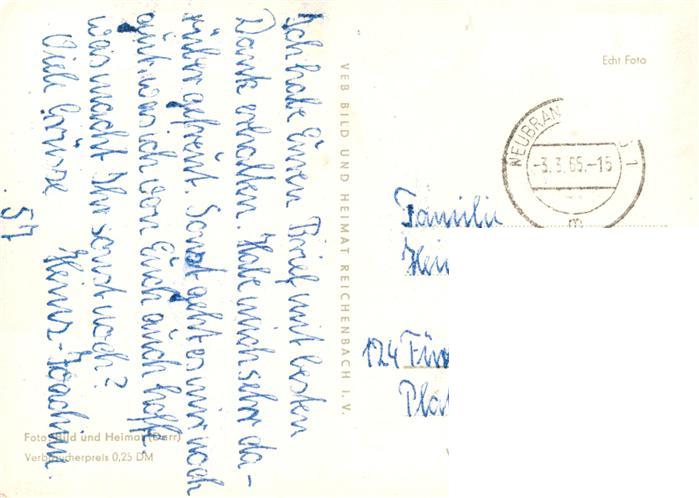 Ich habe Euren Brief mit besten
Dank erhalten. Habe mich sehr da-
rüber gefreut. Sonst geht es mir noch
gut was ich von Euch auch hoffe.
was macht Ihr sonst noch?
Viele Grüsse
Heinz-Joachim.
57
VEB BILD UND HEIMAT REICHENBACH I. V.
Foto: Bild und Heimat (Darr)
Verbraucherpreis 0,25 DM
Echt Foto
NEUBRAN
1
-3.3.65.-15
m
Familie
Hein
124 Für
Pla